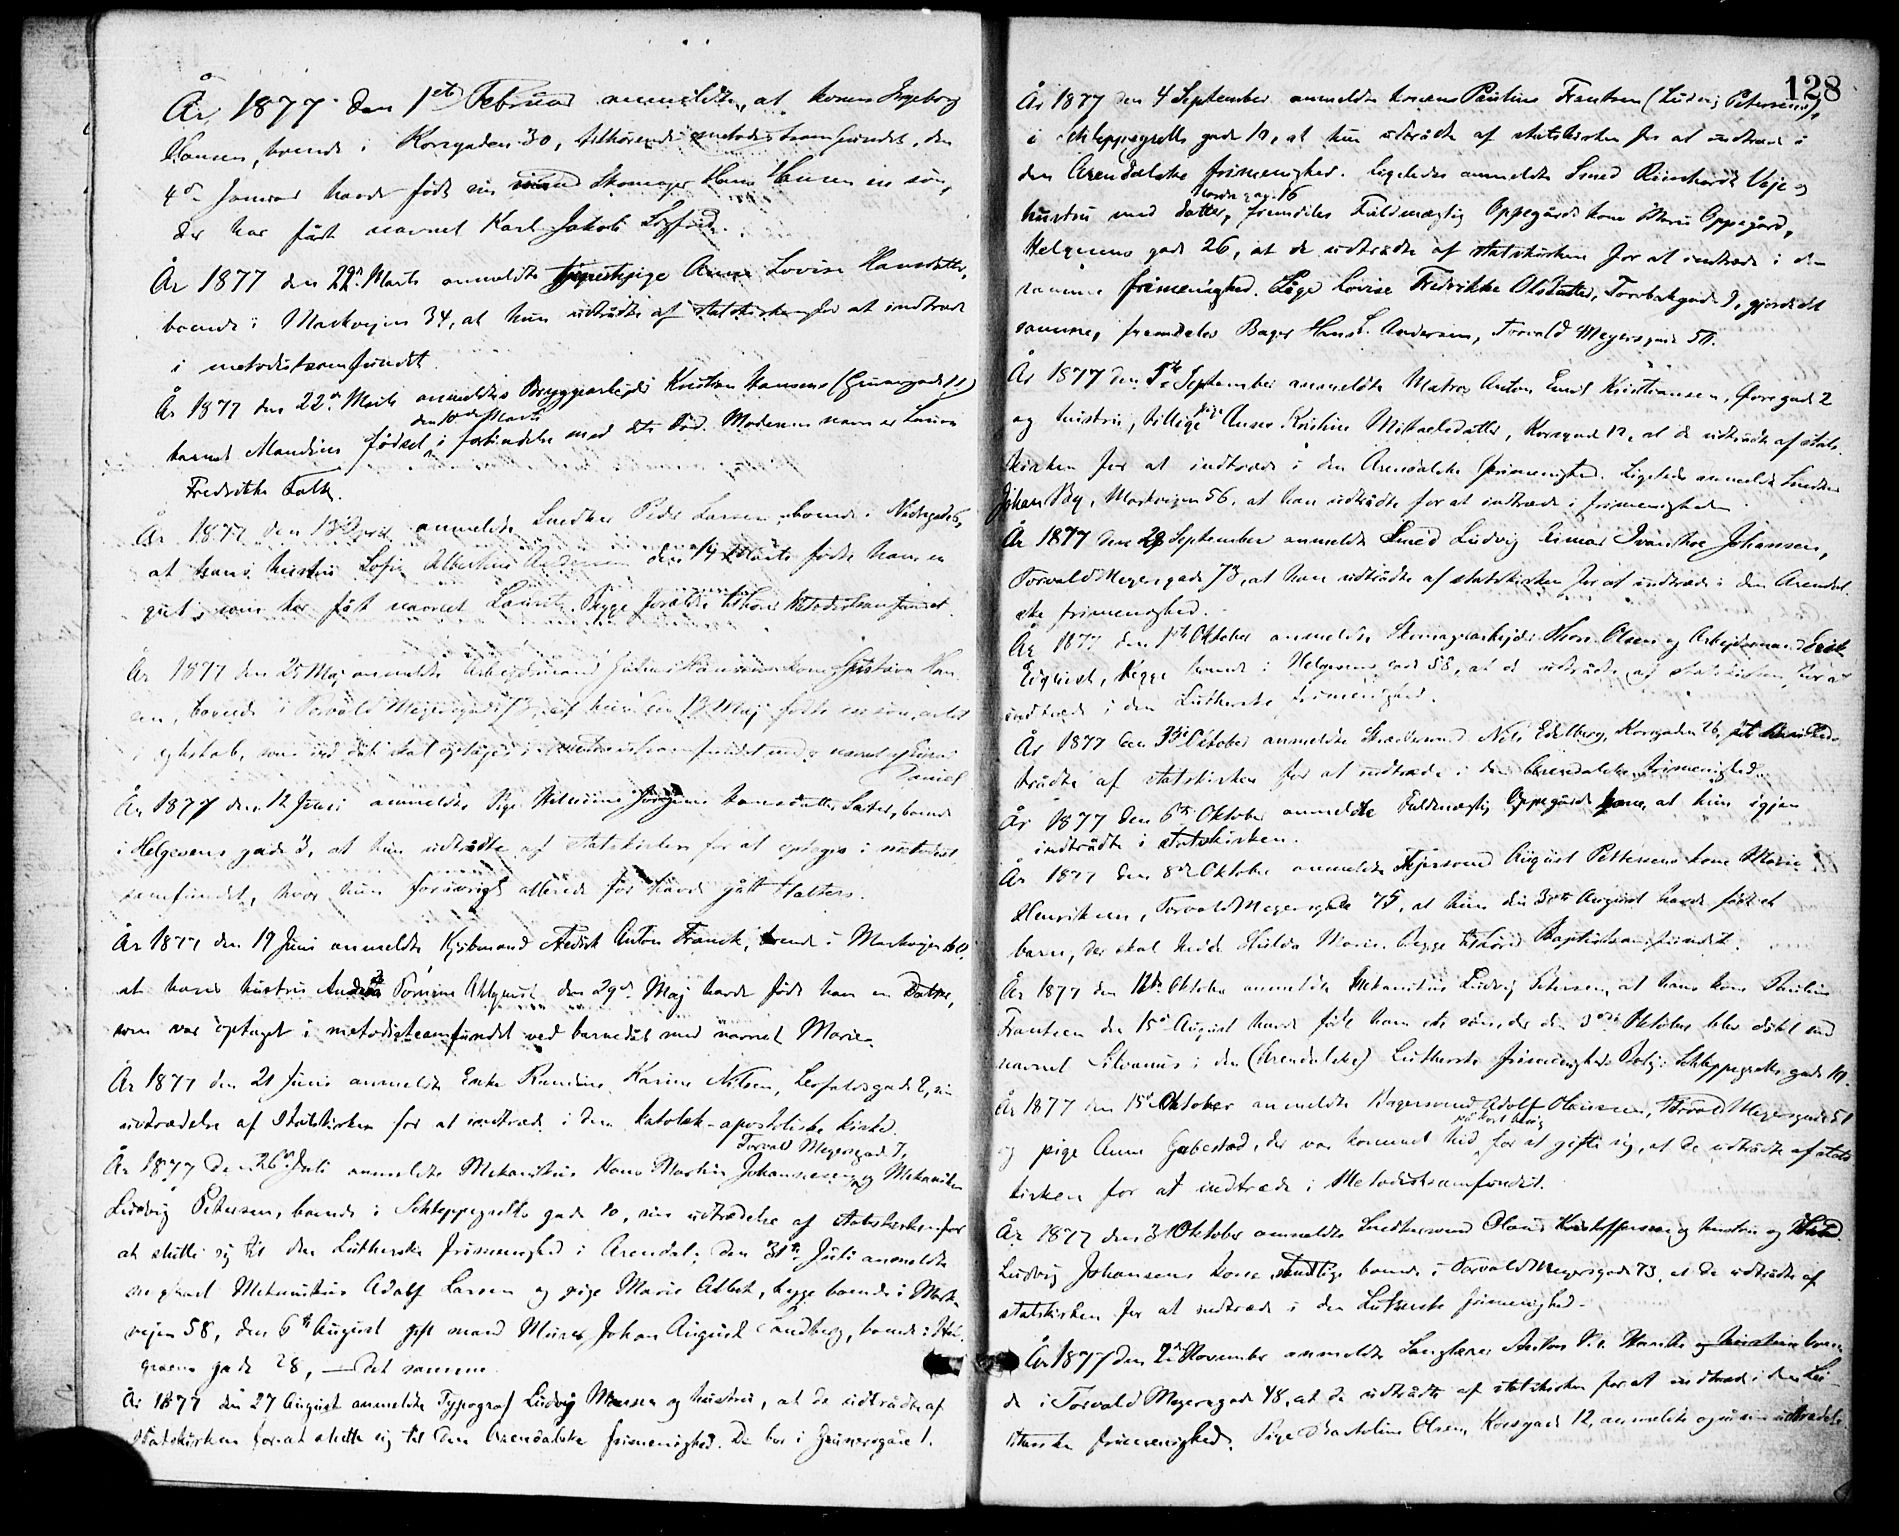 År 1877 den 1ste Februar anmeldte, at konen Ingeborg
Hansen, boende i Korsgaden 30, tilhørende metodistsamfundet, den
4de Januar havde født sin mand Skomager Hans Hansen en søn,
der har fåt navnet Karl Jakob Sigfrid.
År 1877 den 22de Marts anmeldte tjenestepige Anne Lovise Hansdatter,
boende i Markvejen 34, at hun udtrådte af statskirken for at indtræde
i metodistsamfundet.
År 1877 den 22de Marts anmeldtes Bryggearbejder Kristian Hansens (Grunersgade 11)
den 10de Marts
barnet Mandius fødsel i forbindelse med dets Död. Moderens navn er Laura
Fredrikke Falk.
År 1877 den 13 April anmeldte Snedker Peder Larsen, boende i Nedregade 6,
at hans hustru Sofie Albertine Andersen den 14 Marts fødte ham en
gut, som har fåt navnet Lauritz. Begge forældre tilhører Metodistsamfundet.
År 1877 den 25 Maj anmeldte Arbejdsmand Julius Hansens kone Gustava Han
sen, boende i Torvald Meyersgade 73, at hun den 13 Maj fødte en søn, avlet
i egteskab, som ved dåb skal optages i metodistsamfundet med navnet Einar
Daniel
År 1877 den 12 Juni anmeldte Pige Wilhelmine Jörgine Hansdatter Sæter, boende
i Helgesens gade 3, at hun udtrådte af statskirken for at optages i metodist
samfundet, hvor hun forøvrigt allerede før havde gått til alters.
År 1877 den 19 Juni anmeldte Kjøbmand Fredrik Anton Franck, boende i Markvejen 60,
at hans hustru Andrea Tomine Ahlquist den 29de Maj havde født ham en Datter,
som var optaget i metodistsamfundet ved barnedåb med navnet Marie.
År 1877 den 21 Juni anmeldte Enke Randine Karine Nilsen, Leofeldsgade 2, sin
udtrædelse af Statskirken for at indtræde i den katolsk-apostoliske kirke.
Torvald Meyersgade 7,
År 1877 den 26de Juli anmeldte Mekanikus Hans Martin Johannesen og Mekaniker
Ludvig Petersen, boende i Schleppegrells gade 10, sin udtrædelse af statskirken for
at slutte sig til den Lutherske frimenighed i Arendal; den 31te Juli anmeldte
Mekanikus Adolf Larsen og pige Marie Albek, begge boende i Mark-
vejen 58, den 6te August gift mand Murer Johan August Sandberg, boende i Hel
gesens gade 28, — det samme.
År 1877 den 27 August anmeldte Typograf Ludvig Monsen og hustru, at de udtrådte af
Statskirken for at slutte sig til den Arendalske frimenighed. De bor i Grunersgade 1.
128
År 1877 den 4 September anmeldte konen Pauline Frantsen (Ludvig Petersens),
i Schleppegrells gade 10, at hun udtrådte af statskirken for at indtræde i
den Arendalske frimenighed. Ligeledes anmeldte Smed Reinhardt Veje og
hustru med datter, fremdeles Fuldmægtig Oppegårds kone Marie Oppegård,
Helgesens gade 26, at de udtrådte af statskirken for at indtræde i den
samme frimenighed. Pige Lovise Fredrikke Olsdatter, Torvbakgade 9, gjorde det
samme, fremdeles Bager Hans L. Andersen, Torvald Meyersgade 50.
År 1877 den 5te September anmeldte Matros Anton Emil Kristiansen, Fossgade 2
og hustru, tillige pige Anne Kristine Mikkelsdatter, Korsgade 12, at de udtrådte af stats
kirken for at indtræde i den Arendalske frimenighed. Ligeledes anmeldte Snedker
Johan By, Markvejen 56, at han udtrådte for at indtræde i frimenigheden.
År 1877 den 28 September anmeldte Smed Ludvig Einar Ivanhoe Johansen,
Torvald Meyersgade 73, at han udtrådte af statskirken for at indtræde i den Arendal
ske frimenighed.
År 1877 den 1ste Oktober anmeldte Stenhuggerarbejder Thor Olsen og Arbejdsmand Erik
Enquist, begge boende i Helgesens gade 58, at de udtrådte af Statskirken for at
indtræde i den Lutherske frimenighed.
År 1877 den 3die Oktober anmeldte Skræddersvend Nils Edelberg, Korsgaden 26, at han ud-
trådte af statskirken for at indtræde i den Arendalske frimenighed.
År 1877 den 6te Oktober anmeldte Fuldmægtig Oppegårds kone, at hun igjen
indtrådte i statskirken.
År 1877 den 8de Oktober anmeldte Fejersvend August Pettersens kone Marie
Henriksen, Torvald Meyersgade 75, at hun den 30te August havde født et
barn, der skal hede Hilda Marie. Begge tilhører Baptistsamfundet.
År 1877 den 12te Oktober anmeldte Mekanikus Ludvig Petersen, at hans kone Pauline
Frantsen den 15de August havde født ham en søn, der den 3die Oktober blev døbt med
navnet Silvanus i den (Arendalske) Lutherske frimenighed. Bolig: Schleppegrells gade 10.
År 1877 den 15de Oktober anmeldte Bagersvend Adolf Olaussen, Torvald Meyersgade 51
og pige Anne Gabestad, der var kommet hid for at gifte sig, at de udtrådte af stats
kirken for at indtræde i Metodistsamfundet.
År 1877 den 31 Oktober anmeldte Snedkersvend Olaus Kristoffersen og hustru og Smed
Ludvig Johansens kone, samtlige boende i Torvald Meyersgade 73, at de udtrådte af
statskirken for at indtræde i den Lutherske frimenighed.
År 1877 den 2den November anmeldte Sanglærer Anton Hanche og hustru boen
de i Torvald Meyersgade 48, at de udtrådte af statskirken for at indtræde i den Lu-
therske frimenighed. Pige Bartoline Olsen, Korsgade 12, anmeldte også sin udtrædelse